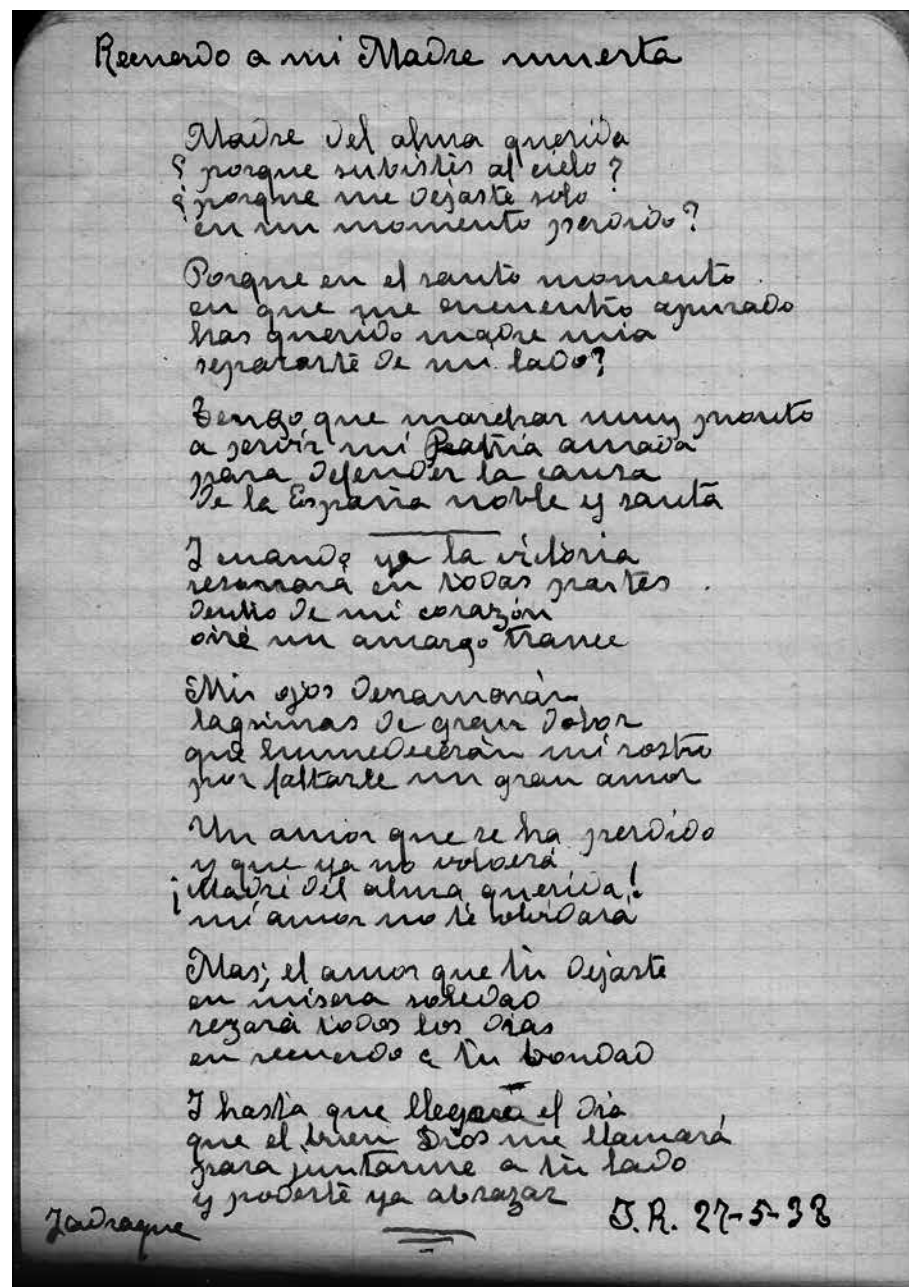 Recuerdo a mi Madre muerta
Madre del alma querida
¿porque subistes al cielo?
¿porque me dejaste solo
en un momento perdido?
Porque en el santo momento
en que me encuentro apurado
has querido madre mia
separarte de mi lado?
Tengo que marchar muy pronto
a servir mi Patria amada
para defender la causa
de la España noble y santa
I cuando ya la victoria
resonará en todas partes
dentro de mi corazón
oiré un amargo trance
Mis ojos derramarán
lagrimas de gran dolor
que humedecerán mi rostro
por faltarle un gran amor
Un amor que se ha perdido
y que ya no volverá
¡Madre del alma querida!
mi amor no te olvidará
Mas; el amor que tu dejaste
en misera soledad
rezará todos los dias
en recuerdo a tu bondad
I hasta que llegará el dia
que el buen Dios me llamará
para juntarme a tu lado
y poderte ya abrazar
Jadraque
J.R. 27-5-38